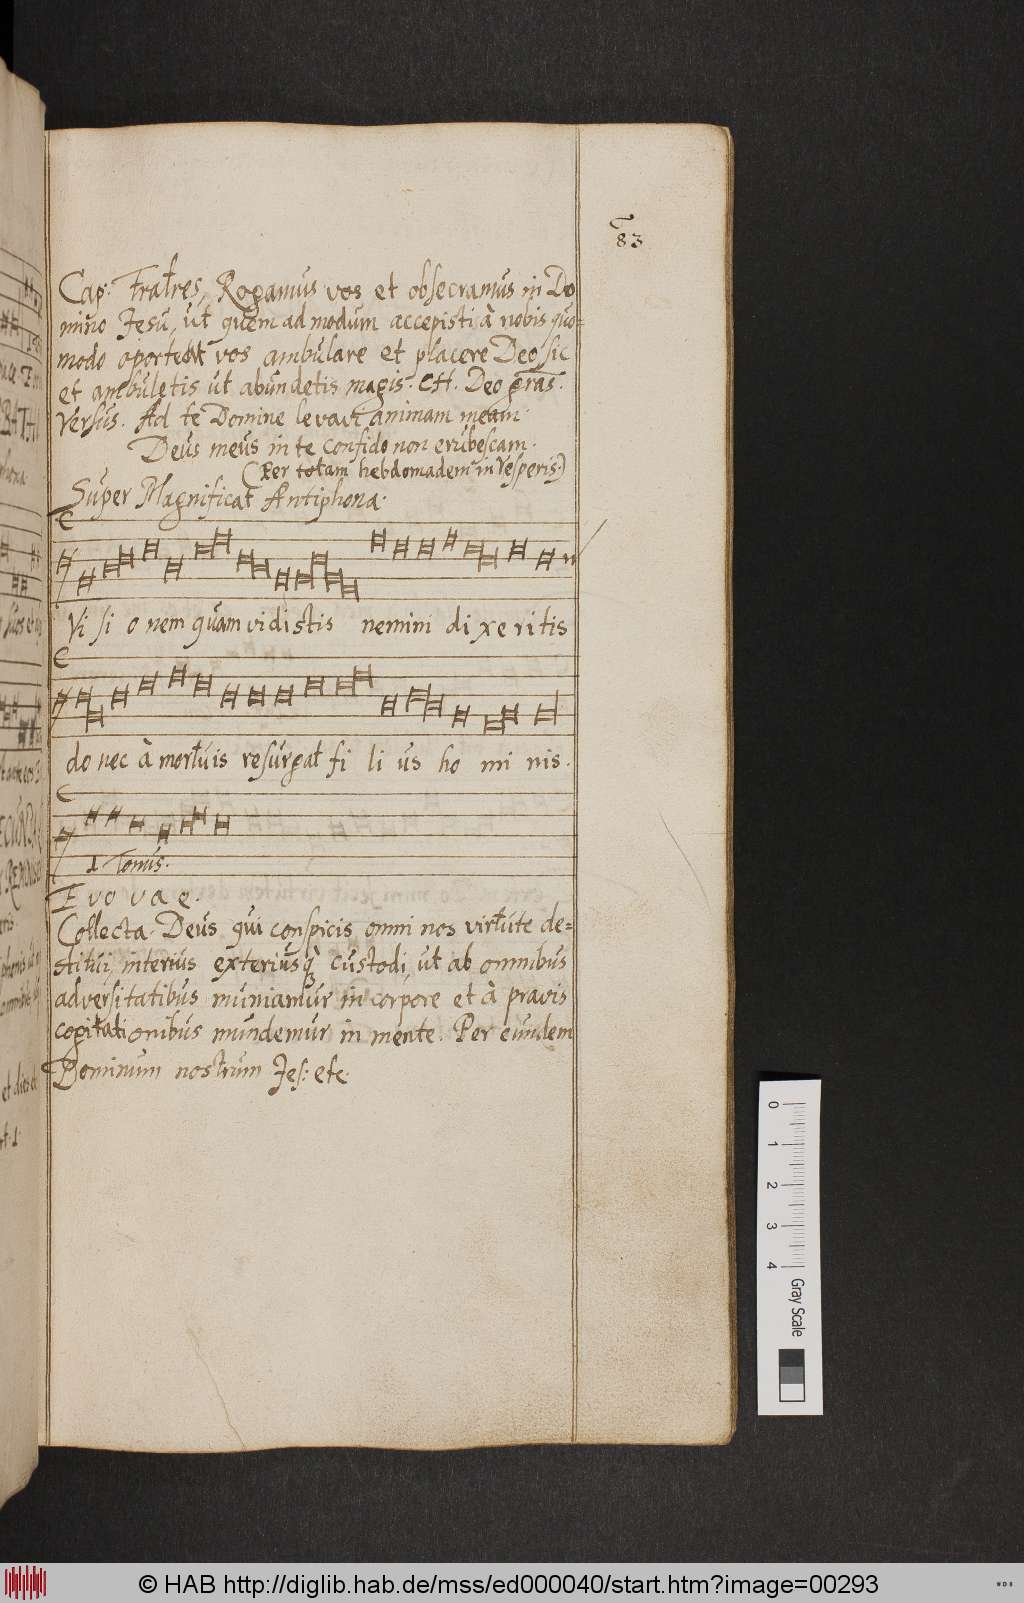 83
Cap: Fratres, Rogamus vos et obsecramus in Do
mino Jesu, ut quem ad modum accepisti à nobis quo=
modo oporteat vos ambulare et placere Deo sic
et ambuletis ut abundetis magis. CH. Deo gras.
Versus. Ad te Domine levavi animam meam.
Deus meus in te confido non erubescam.
(Per totam hebdomadem in Vesperis.)
Super Magnificat Antiphona.
Vi si o nem quam vidistis nemini di xe ritis
do nec à mortuis resurgat fi li us ho mi nis.
1 Tonus.
E vo v a e.
Collecta. Deus qui conspicis omni nos virtute de=
stitui, interius exteriusq custodi, ut ab omnibus
adversitatibus muniamur in corpore et à pravis
cogitationibus mundemur in mente. Per eundem
Dominum nostrum Jes: etc.
0 1 2 3 4 Gray Scale
© HAB http://diglib.hab.de/mss/ed000040/start.htm?image=00293